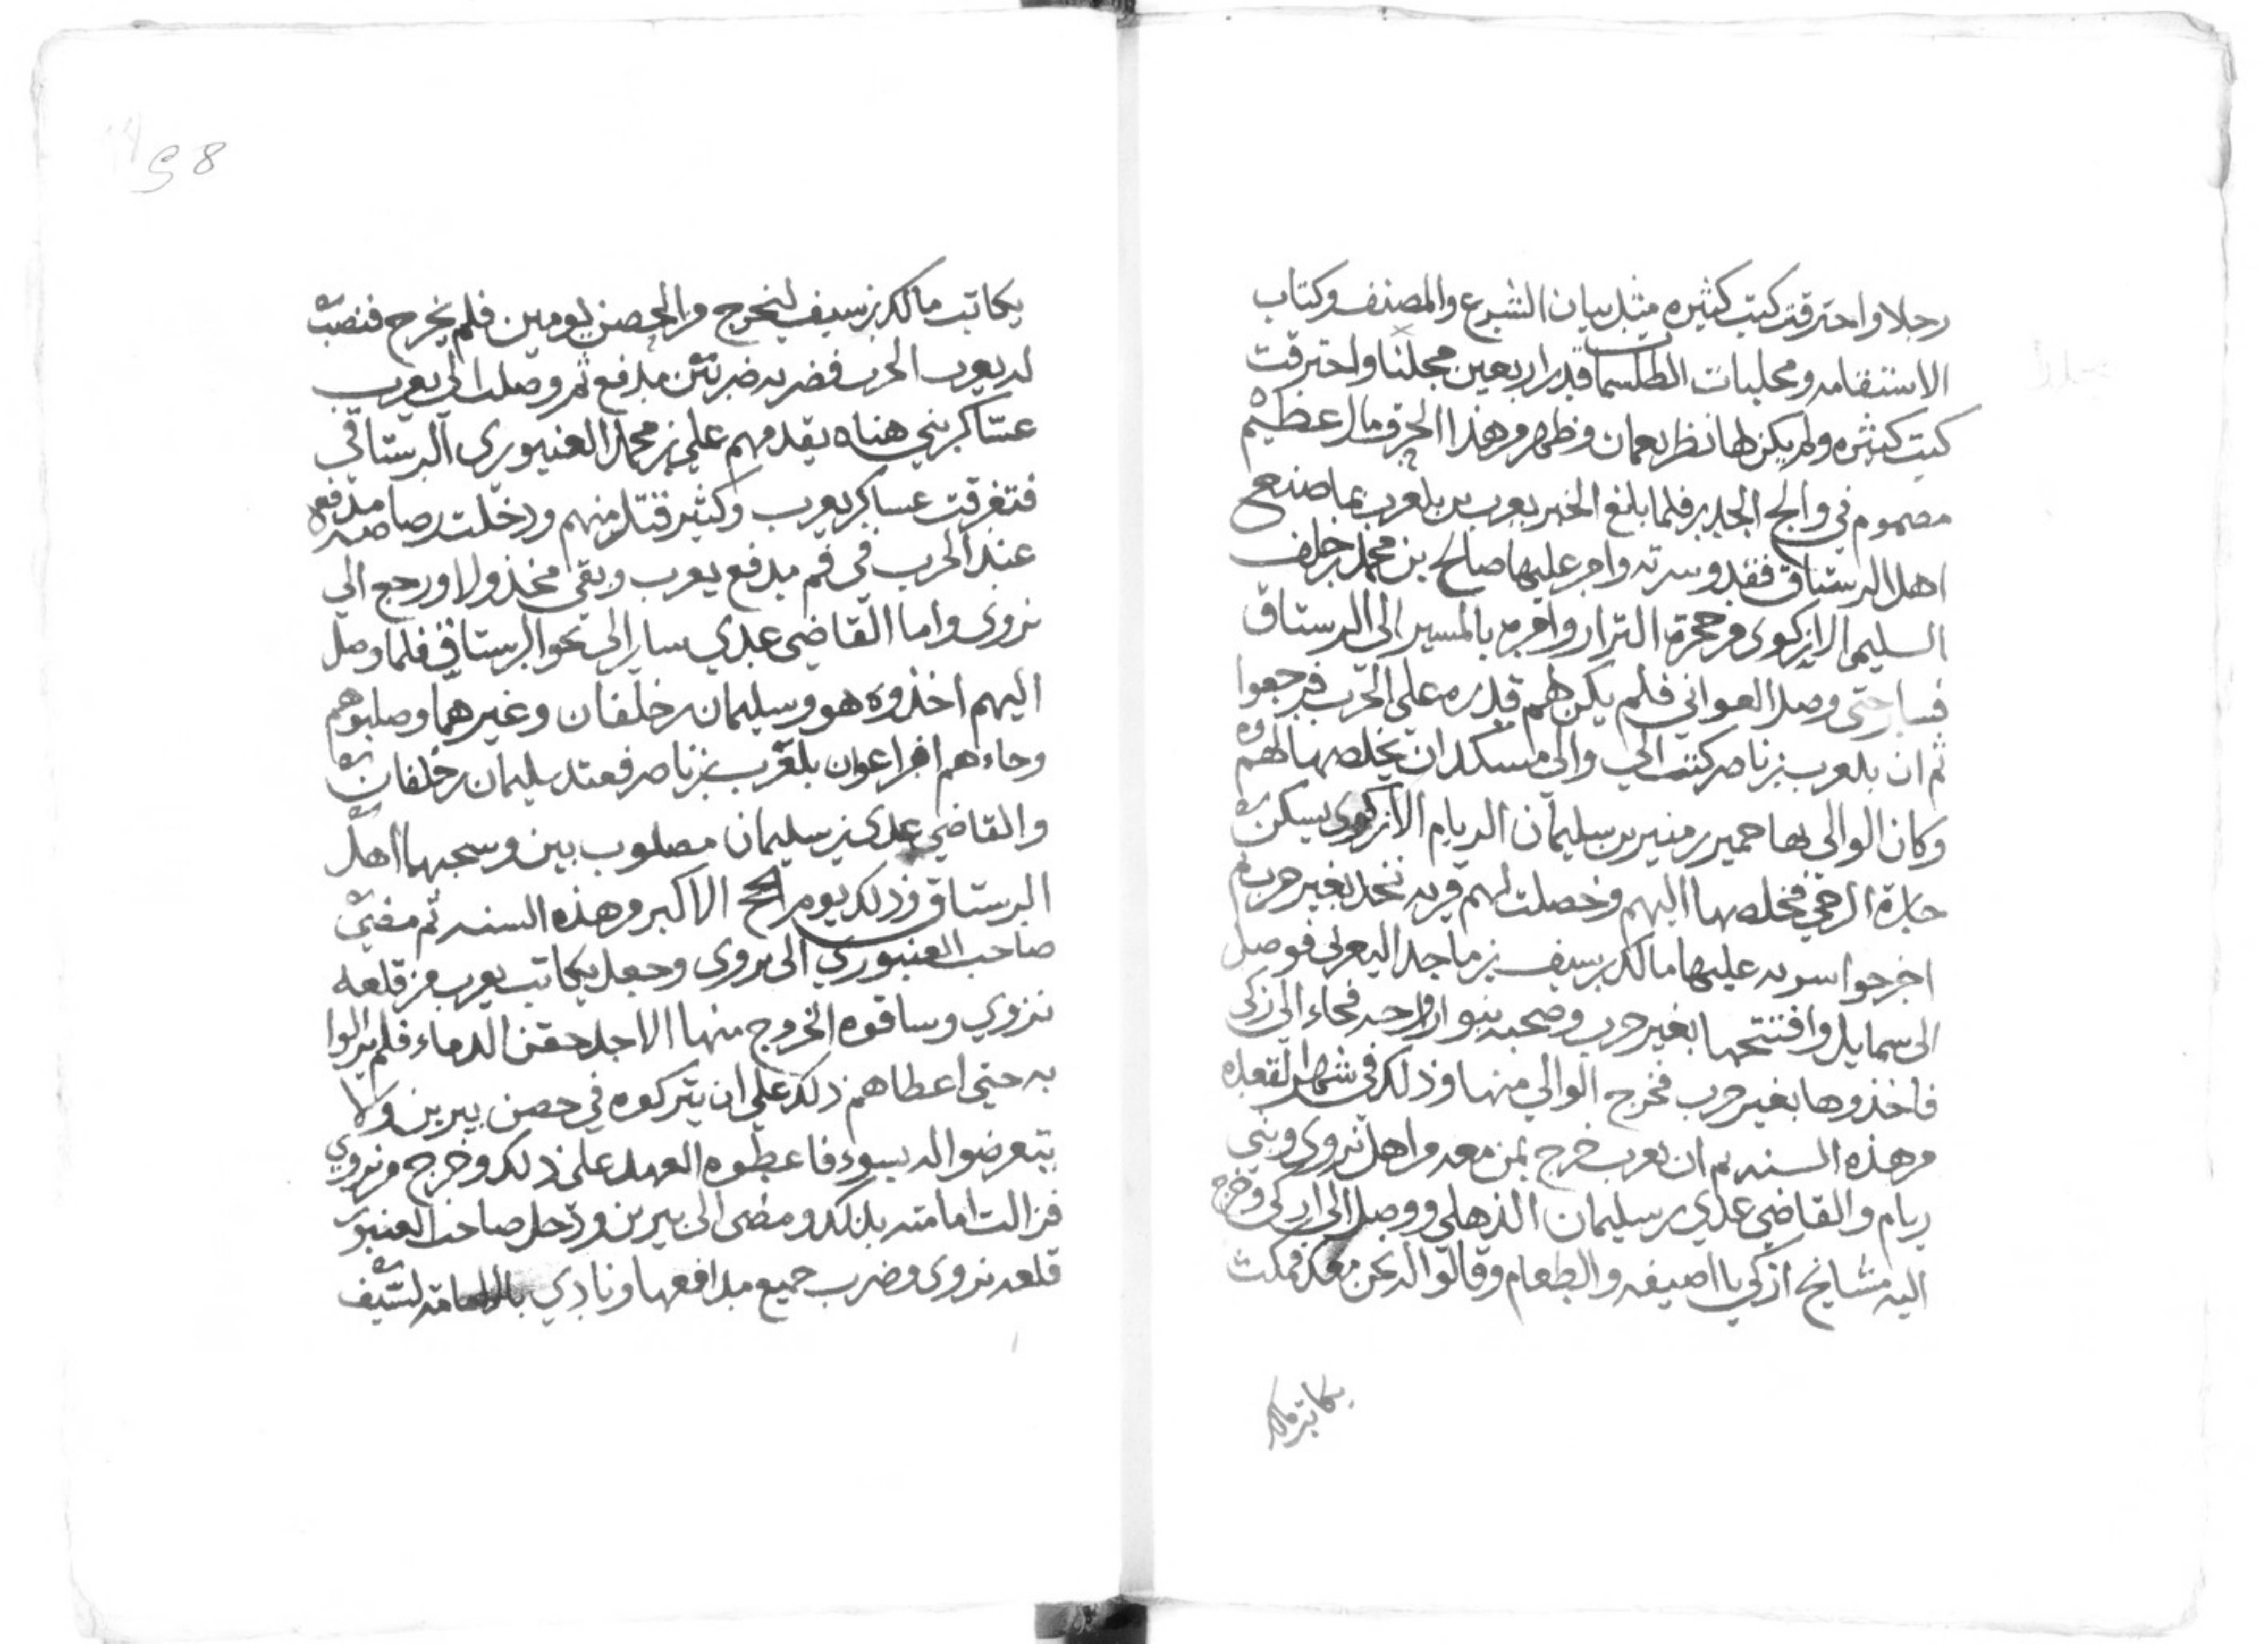 رجلا واحترقت كتب كثيره مثل بيان الشرع والمصنف وكتاب
الاستقامه ومجلبات الطلسمات قدر اربعين مجلدا واحترقت
كتب كثيره ولم يكن لها نظر بعمان وظهر من هذا الحرق مال عظيم
مصموم في والج الجدر فلما بلغ الخبر يعرب بن بلعرب بما صنع
اهل الرستاق فقد وسريه وامر عليها صالح بن محمد بن خلف
السليمي الازكوي من حجرة النزار وامره بالمسير الى الرستاق
فسار حتى وصل العوابي فلم يكن لهم قدره على الحرب فرجعوا
ثم ان بلعرب بن ناصر كتب الى والي مسكد ان يخلصها لهم
وكان الوالي بها حمير بن منير بن سليمان الريامي الازكوي يسكن
حارة الرحى فخلصها اليهم وخصلت لهم قريه نخل بغير حرب ثم
اخرجوا سريه عليها مالك بن سيف بن ماجد اليعربي فوصل
الى سمايل وافتتحها بغير حرب وصحبه بنوا رواحه فجاء الى ازكى
فاخذوها بغير حرب فخرج الوالي منها وذلك في شهر القعده
من هذه السنه ثم ان يعرب خرج بمن معه من اهل نزوى وبني
ريام والقاضي عدي بن سليمان الذهلي ووصل الى ازكي وخرج
اليه مشايخ ازكي باا صيفه والطعام وقالوا له نحن معك فمكث
يكاتب مالك
98
يكاتب مالك بن سيف ليخرج من الحصن يومين فلم يخرج فنصب
له يعرب الحرب فضربه ضربتين مدفع ثم وصلت الى يعرب
عساكر بني هناه يقدمهم علي بن محمد العنبوري الرستاقي
فتفرقت عساكر يعرب وكثير قتل منهم ودخلت رصاصه مدفع
عند الحرب في فم مدفع يعرب وبقى مخذولا ورجع الى
نزوى واما القاضي عدي سار الى نحو الرستاق فلما وصل
اليهم اخذوه هو وسليمان بن خلفان وغيرهما وصلبوهم
وجاءهم اعوان بلعرب بن ناصر فقتل سليمان بن خلفان
والقاضي عدي بن سليمان مصلوبين وسحبهما اهل
الرستاق وذلك يوم الحج الاكبر من هذه السنه ثم مضى
صاحب العنبوري الى نزوى وجعل يكاتب يعرب من قلعه
نزوي وساقوه الخروج منها الاجل حقن الدماء فلم يزالوا
به حتى اعطاهم ذلك على ان يتركوه في حصن يبرين ولا
يتعرضوا له بسوء فاعطوه العهد على ذلك وخرج من نزوي
فزالت امامته بذلك ومضى الى يبرين ودخل صاحب العنبور
قلعه نزوى وضرب جميع مدافعها ونادي بالامامه لسيف